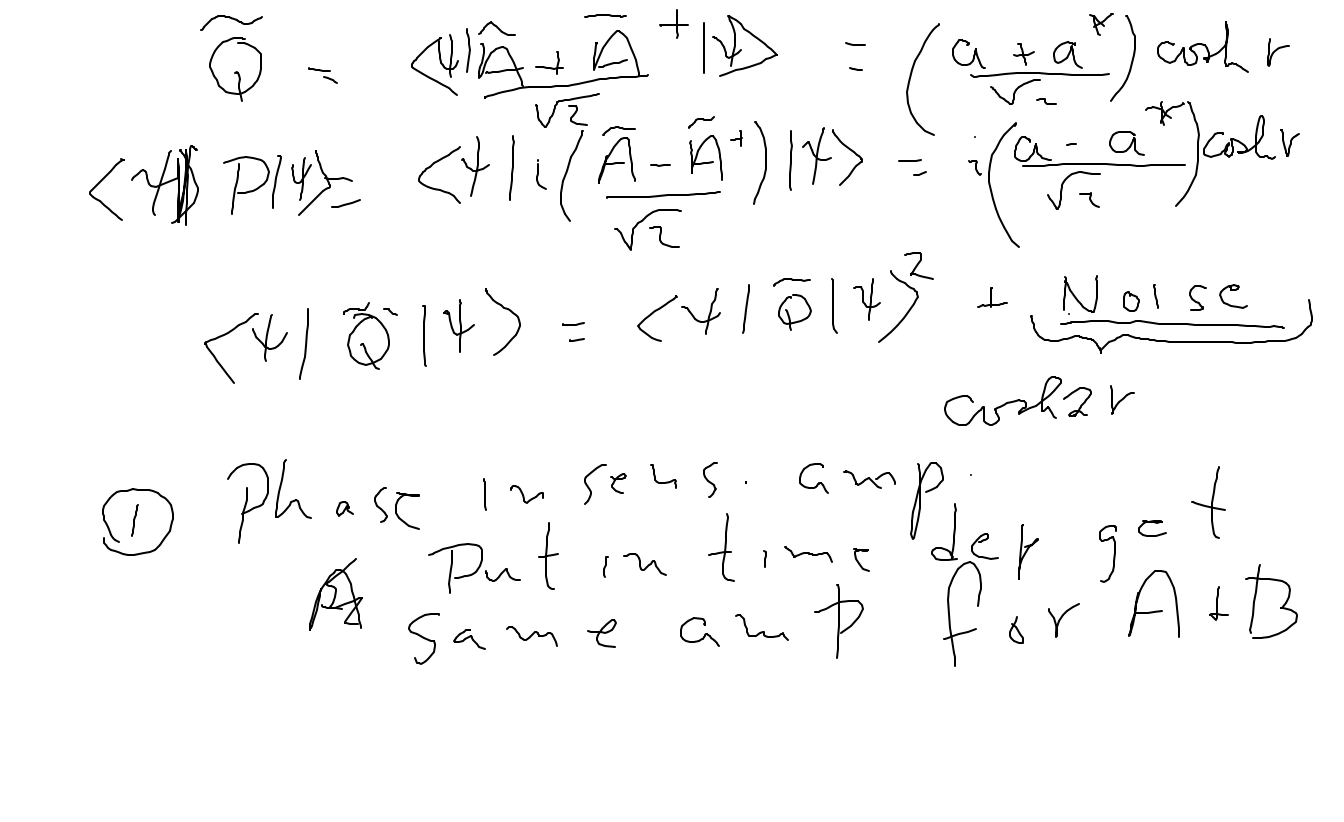 Q̃ = <ψ|Ã + Ã⁺|ψ> / √2 = (a + a*/√2) cosh r
<ψ| P|ψ> = <ψ| i(Ã - Ã⁺/√2) |ψ> = i(a - a*/√2) cosh r
<ψ| Q̃ |ψ> = <ψ| Q̃ |ψ>² + Noise
cosh 2r
① Phase insens. amp.
Put in time der get
same amp for A + B